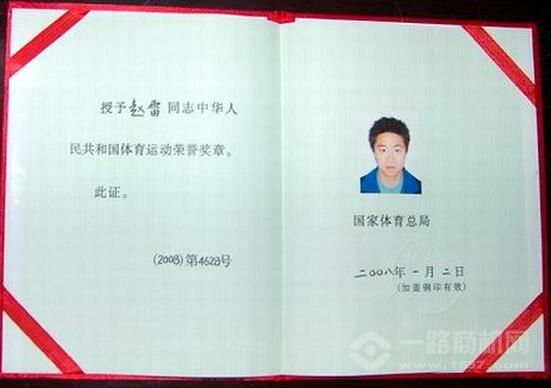 授予赵雷同志中华人
民共和国体育运动荣誉奖章。
此证。
(2008)第4628号
国家体育总局
二〇〇八年一月二日
(加盖钢印有效)
一路商机网
www.1637.com